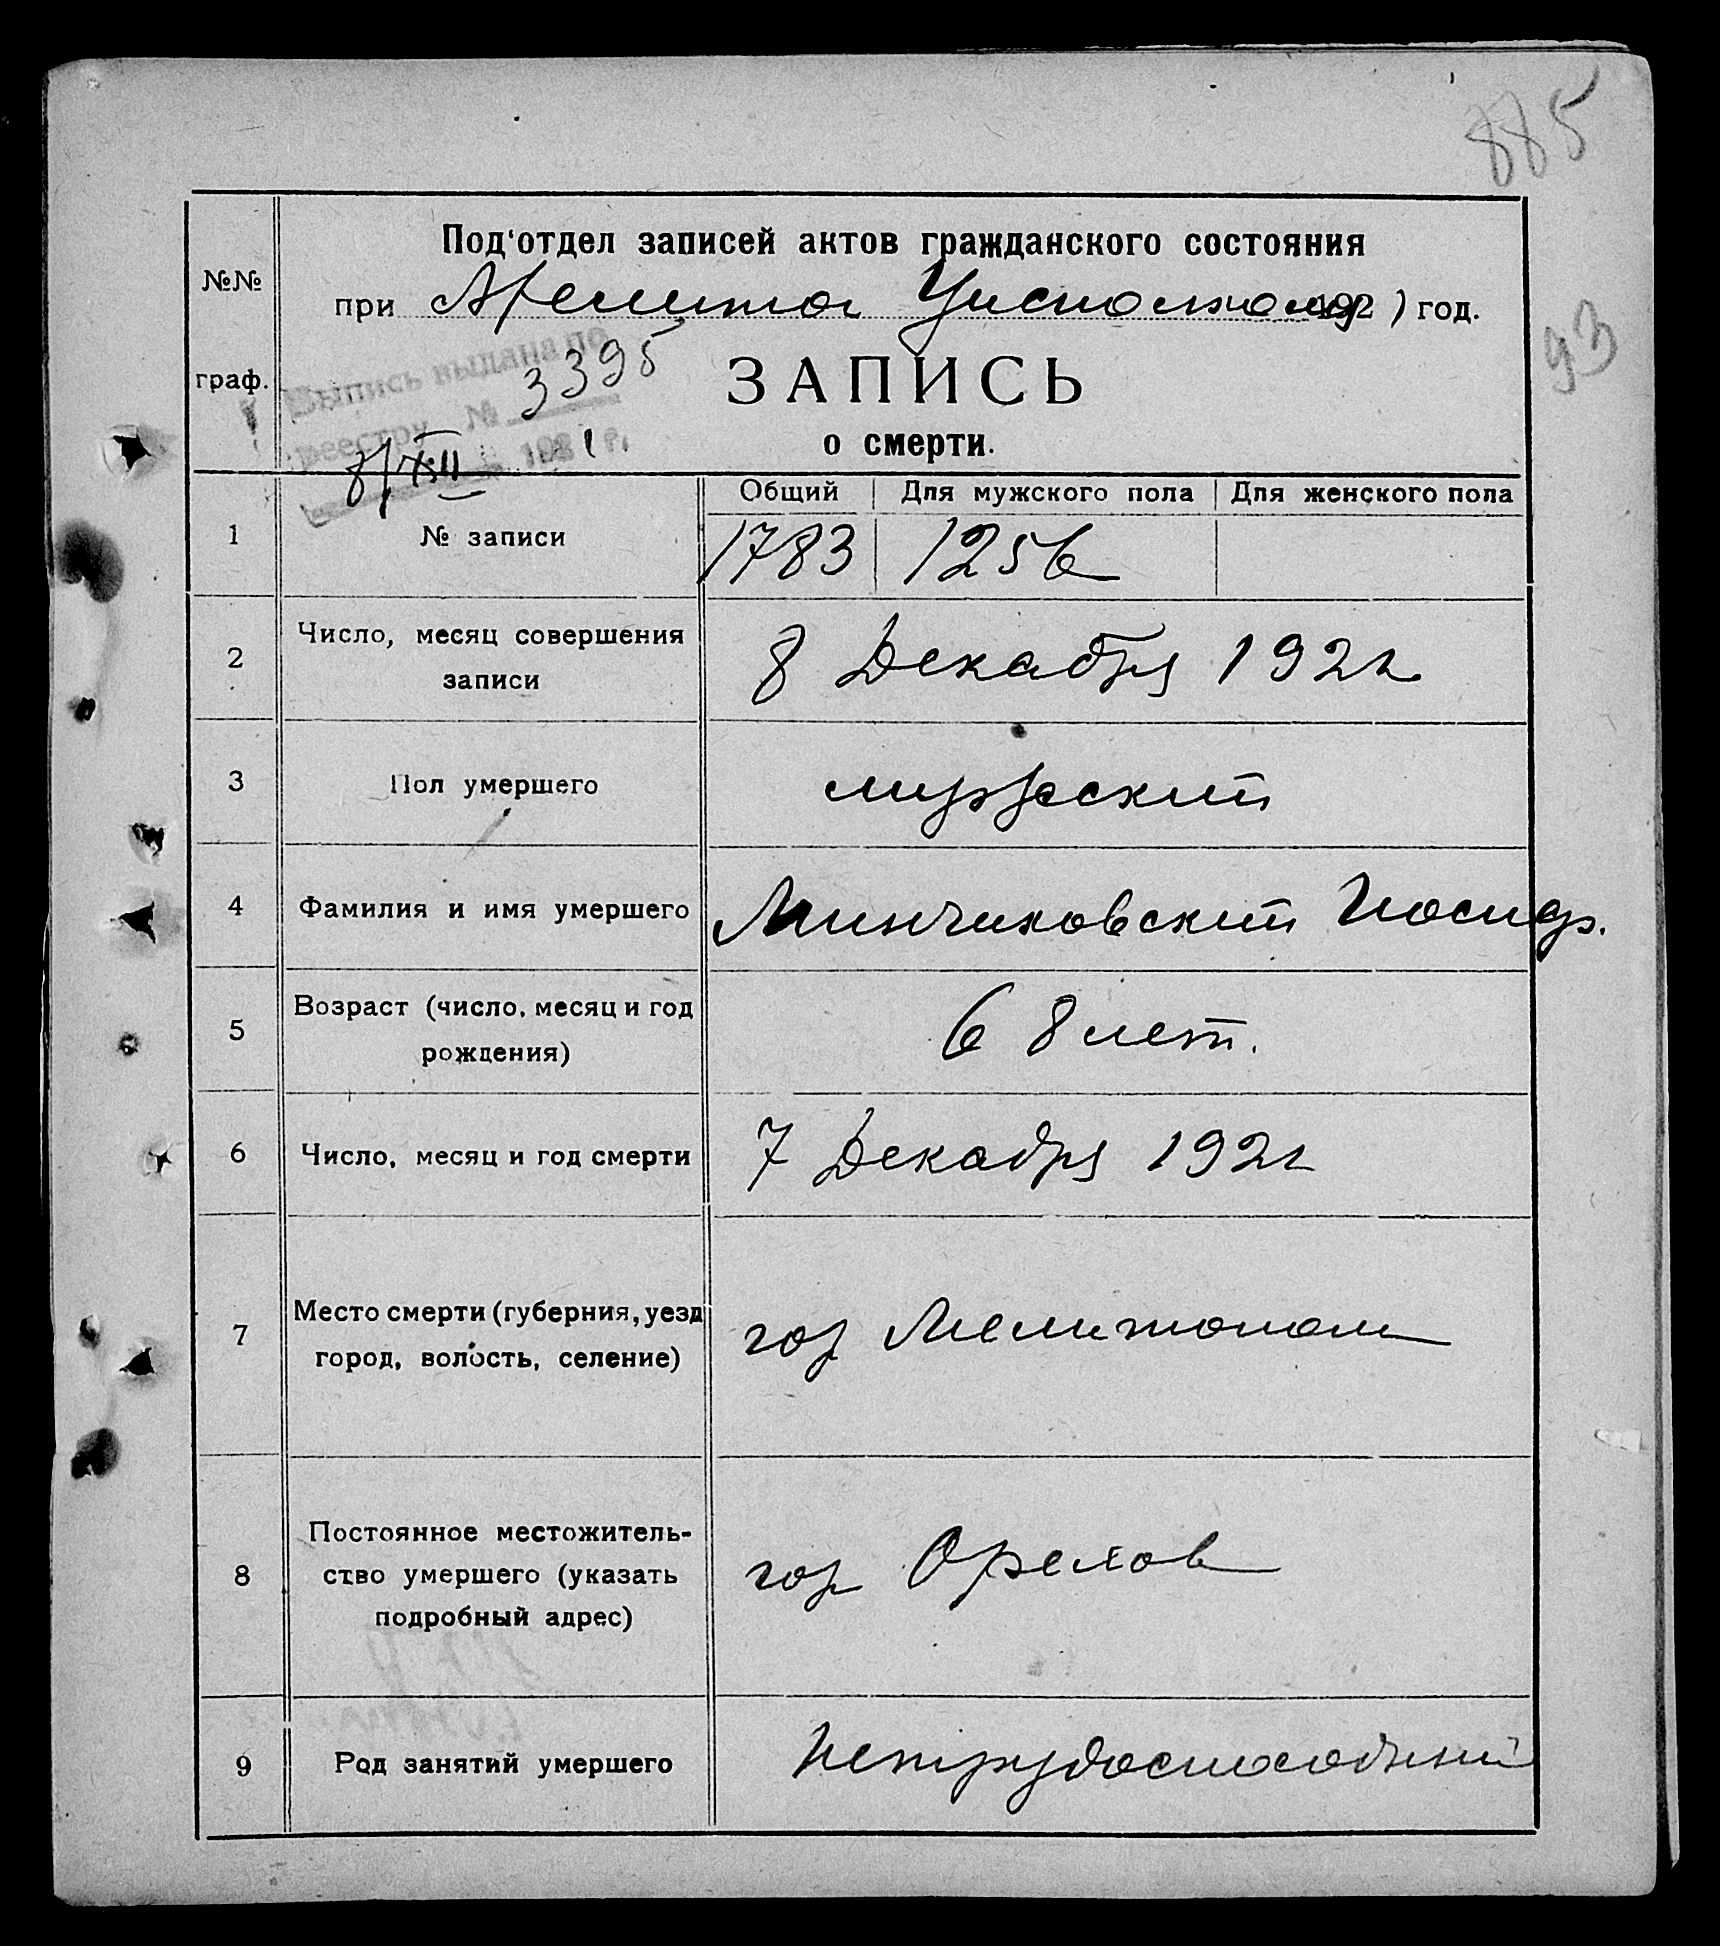 885
Под'отдел записей актов гражданского состояния
№№
при Мелитоп Уисполкома 1921 год.
93
граф.
Выпись выдана по
реестру № 3395
8/XII 1921 г.
ЗАПИСЬ
о смерти.
Общий Для мужского пола Для женского пола
1 № записи 1783 1256
2 Число, месяц совершения
записи
8 Декабря 1921
3 Пол умершего мужеский
4 Фамилия и имя умершего Минчиковский Иосиф.
5 Возраст (число, месяц и год
рождения)
68 лет.
6 Число, месяц и год смерти 7 Декабря 1921
7 Место смерти (губерния, уезд
город, волость, селение)
гор Мелитополь
8 Постоянное местожитель-
ство умершего (указать
подробный адрес)
гор Орехов
9 Род занятий умершего Нетрудоспособный